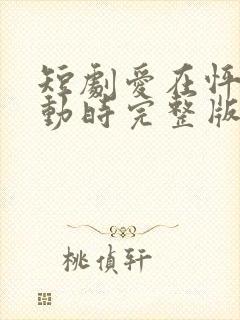 短劇愛在怦
動時完整版
桃偵軒